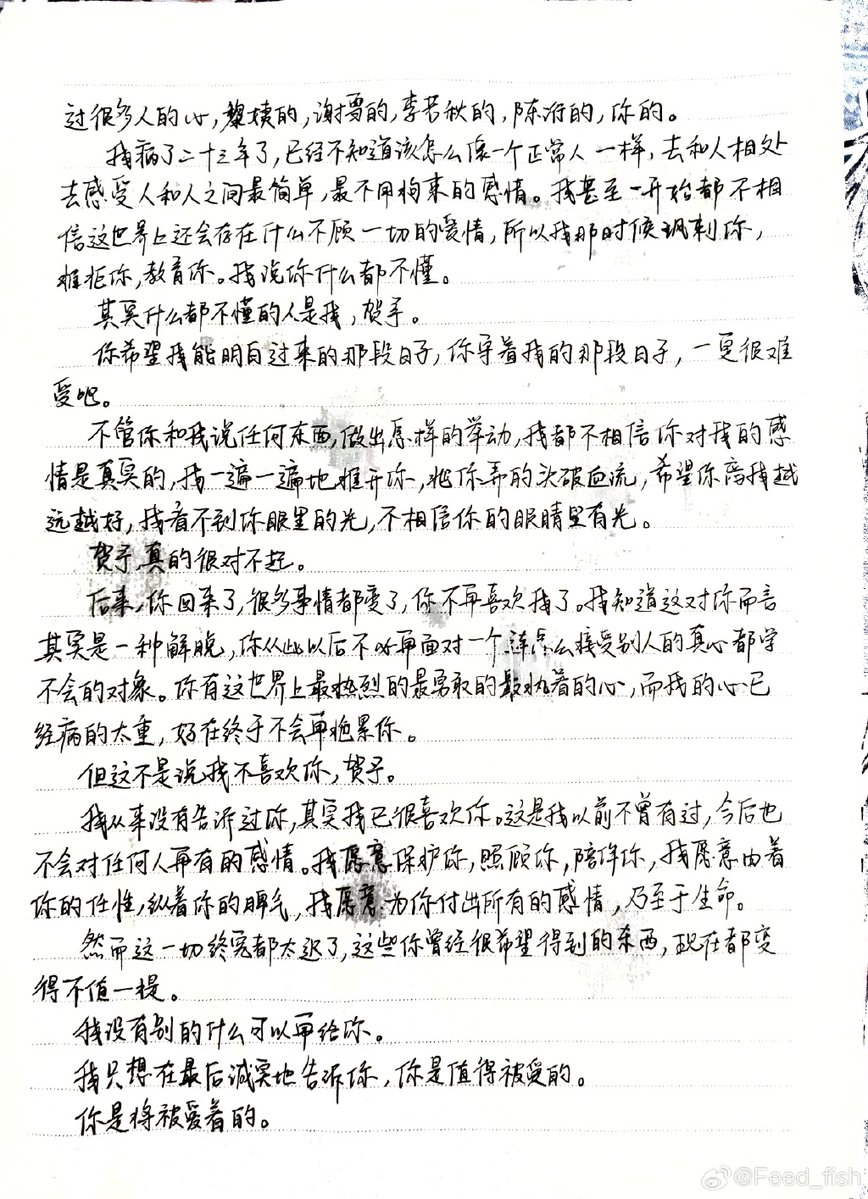 过很多人的心，黎姨的，谢雪的，李若秋的，陈衍的，你的。
我病了二十三年了，已经不知道该怎么像一个正常人一样，去和人相处
去感受人和人之间最简单，最不用拘束的感情。我甚至一开始都不相
信这世界上还会存在什么不顾一切的爱情，所以我那时候讽刺你，
难拒你，教育你。我说你什么都不懂。
其实什么都不懂的人是我，贺予。
你希望我能明白过来的那段日子，你守着我的那段日子，一定很难
受吧。
不管你和我说任何东西，做出怎样的举动，我都不相信你对我的感
情是真实的，我一遍一遍地推开你，把你弄的头破血流，希望你离我越
远越好，我看不到你眼里的光，不相信你的眼睛里有光。
贺予，真的很对不起。
后来，你回来了，很多事情都变了，你不再喜欢我了。我知道这对你而言
其实是一种解脱，你从此以后不必再面对一个连怎么接受别人的真心都学
不会的对象。你有这世界上最热烈的最勇敢的最执着的心，而我的心已
经病的太重，好在终于不会再拖累你。
但这不是说我不喜欢你，贺予。
我从来没有告诉过你，其实我已很喜欢你。这是我以前不曾有过，今后也
不会对任何人再有的感情。我愿意保护你，照顾你，陪伴你，我愿意由着
你的任性，纵着你的脾气，我愿意为你付出所有的感情，乃至于生命。
然而这一切终究都太迟了，这些你曾经很希望得到的东西，现在都变
得不值一提。
我没有别的什么可以再给你。
我只想在最后诚实地告诉你，你是值得被爱的。
你是将被爱着的。
@Feed_fish